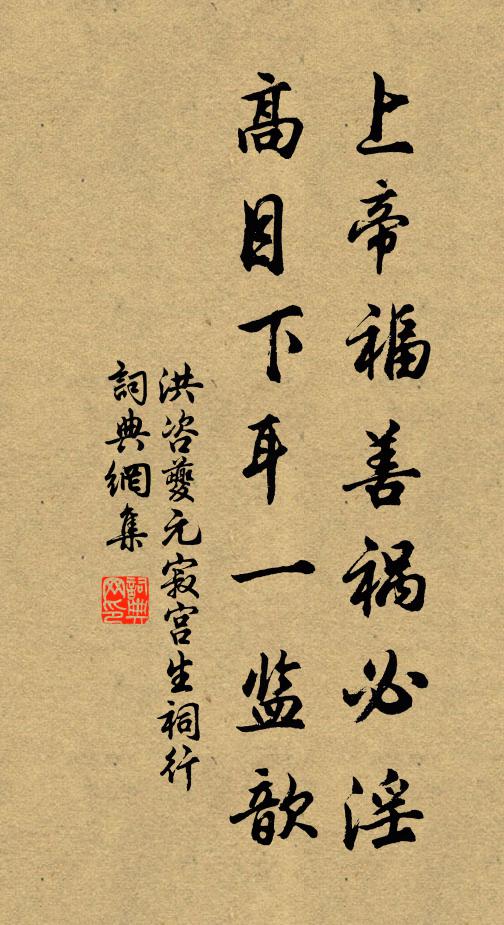 上帝福善祸必淫
高目下耳一监歆
洪咨夔元寂宫生祠行
詞典網集
詞典
网印